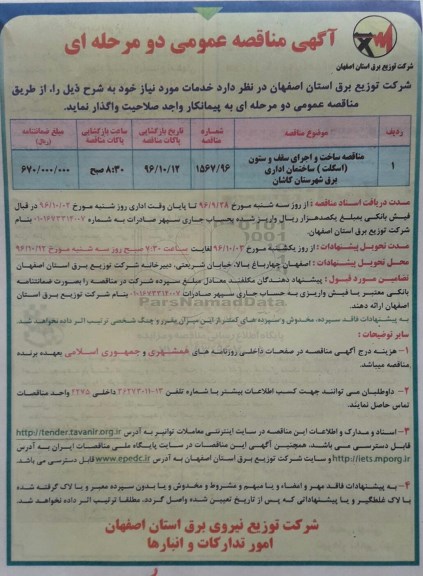 آگهی مناقصه عمومی دو مرحله ای
شرکت توزیع برق استان اصفهان
شرکت توزیع برق استان اصفهان در نظر دارد خدمات مورد نیاز خود به شرح ذیل را، از طریق
مناقصه عمومی دو مرحله ای به پیمانکار واجد صلاحیت واگذار نماید.
ردیف موضوع مناقصه شماره مناقصه تاریخ بازگشایی پاکات مناقصه ساعت بازگشایی پاکات مناقصه مبلغ ضمانتنامه (ریال)
۱ مناقصه ساخت و اجرای سقف و ستون (اسکلت) ساختمان اداری برق شهرستان کاشان ۱۵۶۷/۹۶ ۹۶/۱۰/۱۲ ۸:۳۰ صبح ۶۷۰/۰۰۰/۰۰۰
مدت دریافت اسناد مناقصه : از روز سه شنبه مورخ ۹۶/۹/۲۸ تا پایان وقت اداری روز شنبه مورخ ۹۶/۱۰/۰۲ در قبال
فیش بانکی بمبلغ یکصدهزار ریال واریز شده بحساب جاری سپهر صادرات به شماره بنام
شرکت توزیع برق استان اصفهان.
مدت تحویل پیشنهادات : از روز یکشنبه مورخ ۹۶/۱۰/۰۳ لغایت ساعت ۷:۳۰ صبح روز سه شنبه مورخ ۹۶/۱۰/۱۲
محل تحویل پیشنهادات : اصفهان چهارباغ بالا، خیابان شریعتی، دبیرخانه شرکت توزیع برق استان اصفهان
تضامین مورد قبول : پیشنهاد دهندگان مکلفند معادل مبلغ سپرده شرکت در مناقصه را بصورت ضمانتنامه
بانکی معتبر یا فیش واریزی به حساب جاری سپهر صادرات بنام شرکت توزیع برق استان
اصفهان ارائه دهند.
به پیشنهادات فاقد سپرده، مخدوش و سپرده های کمتر از این میزان مقرر و چک شخصی ترتیب اثر داده نخواهد شد.
سایر توضیحات :
۱- هزینه درج آگهی مناقصه در صفحات داخلی روزنامه های همشهری و جمهوری اسلامی بعهده برنده
مناقصه میباشد.
۲- داوطلبان می توانند جهت کسب اطلاعات بیشتر با شماره تلفن ۱۳-۳۶۲۷۳۰۱۱ داخلی ۲۲۷۵ واحد مناقصات
تماس حاصل نمایند.
۳- اسناد و مدارک و اطلاعات این مناقصه در سایت اینترنتی معاملات توانیر به آدرس http://tender.tavanir.org.ir
قابل دسترسی می باشد. همچنین آگهی این مناقصات در سایت پایگاه ملی مناقصات ایران به آدرس
http://iets.mporg.ir و سایت شرکت توزیع برق استان اصفهان به آدرس www.epedc.ir قابل دسترسی می باشد.
۴- به پیشنهادات فاقد مهر و امضاء و یا مبهم و مشروط و مخدوش و یا بدون سپرده معتبر و یا لاک گرفته شده
یا لاک غلطگیر و یا پیشنهاداتی که پس از تاریخ تعیین شده واصل گردد، مطلقا ترتیب اثر داده نخواهد شد.
شرکت توزیع نیروی برق استان اصفهان
امور تدارکات و انبارها
ParsNamadData